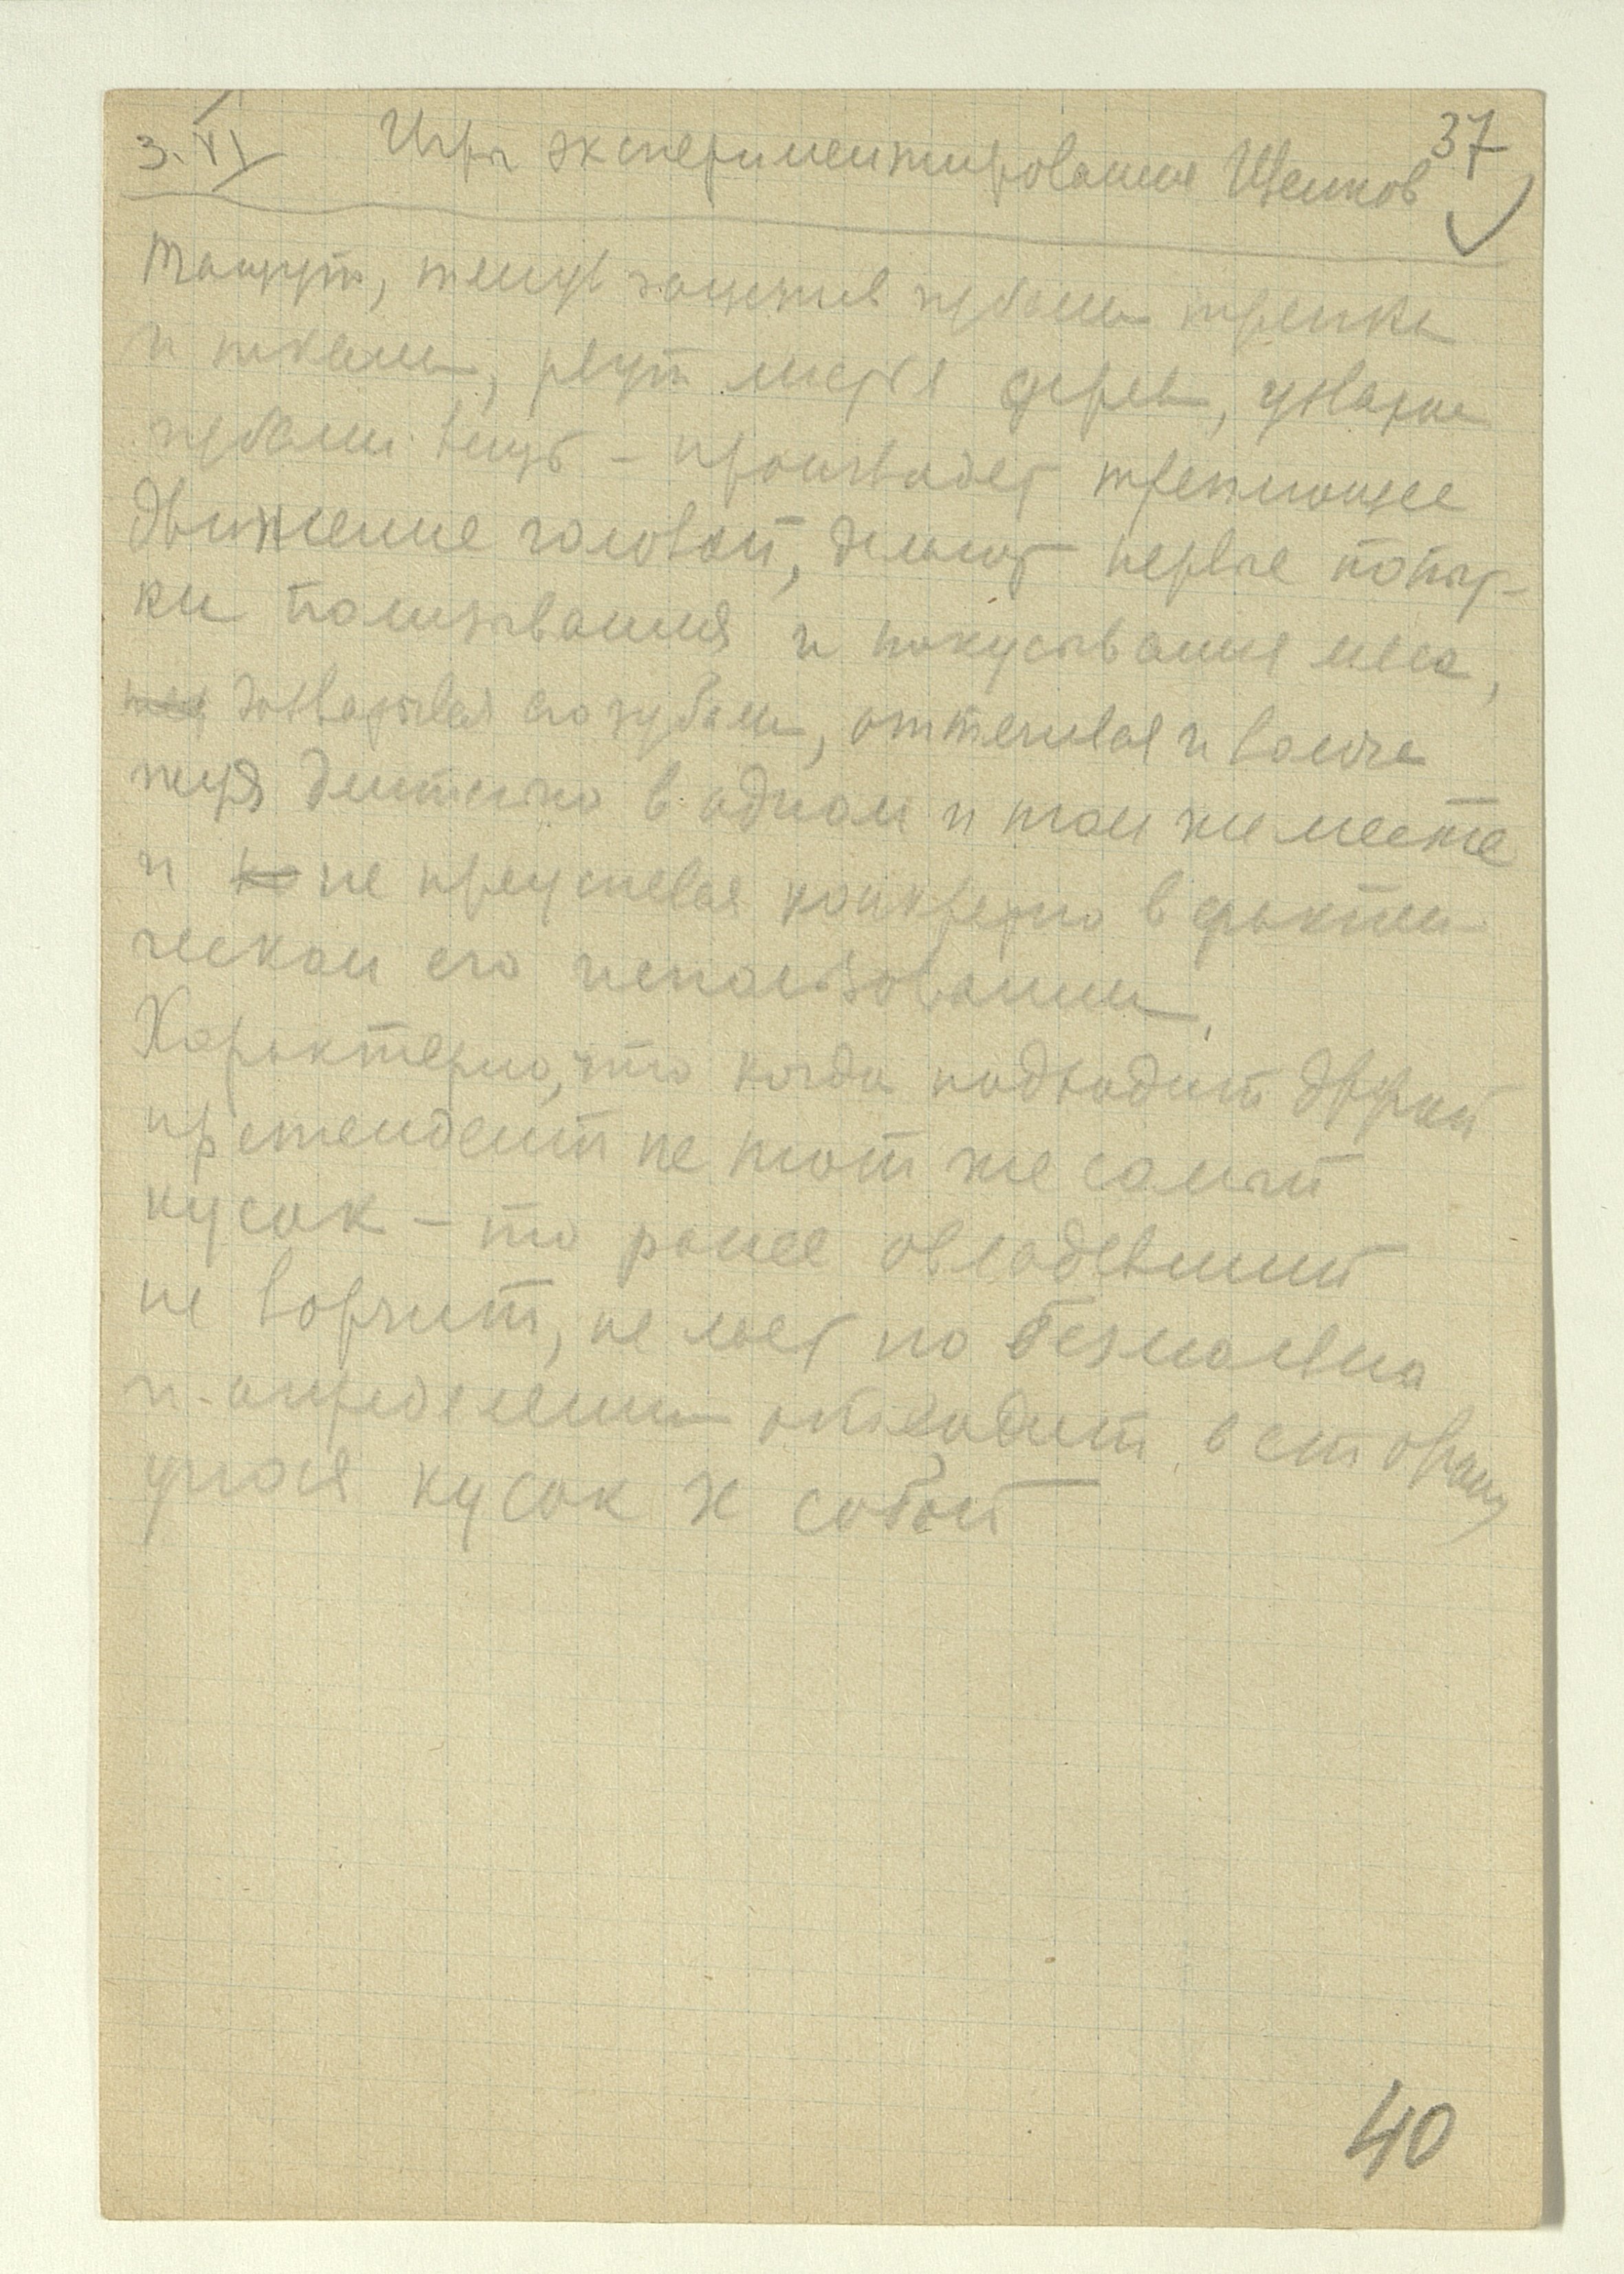 37
3.VI Игры экспериментирование Щенков
Тащут, тянут зацепив зубами тряпки
и ткани, рвут листья дерев, ухватив
зубами вещь – производят треплющее
движение головой, делают первые попыт-
ки полизывания и покусывания мяса,
захватывая его зубами, оттягивая и волоча
жуя длительно в одном и том же месте
и не преуспевая конкретно в факти
ческом его использовании.
Характерно, что когда подходит другой
претендент не тот же самый
кусок – то ранее овладевший
не ворчит, не лает но безмолвно
и отходит в сторону
унося кусок с собой
40